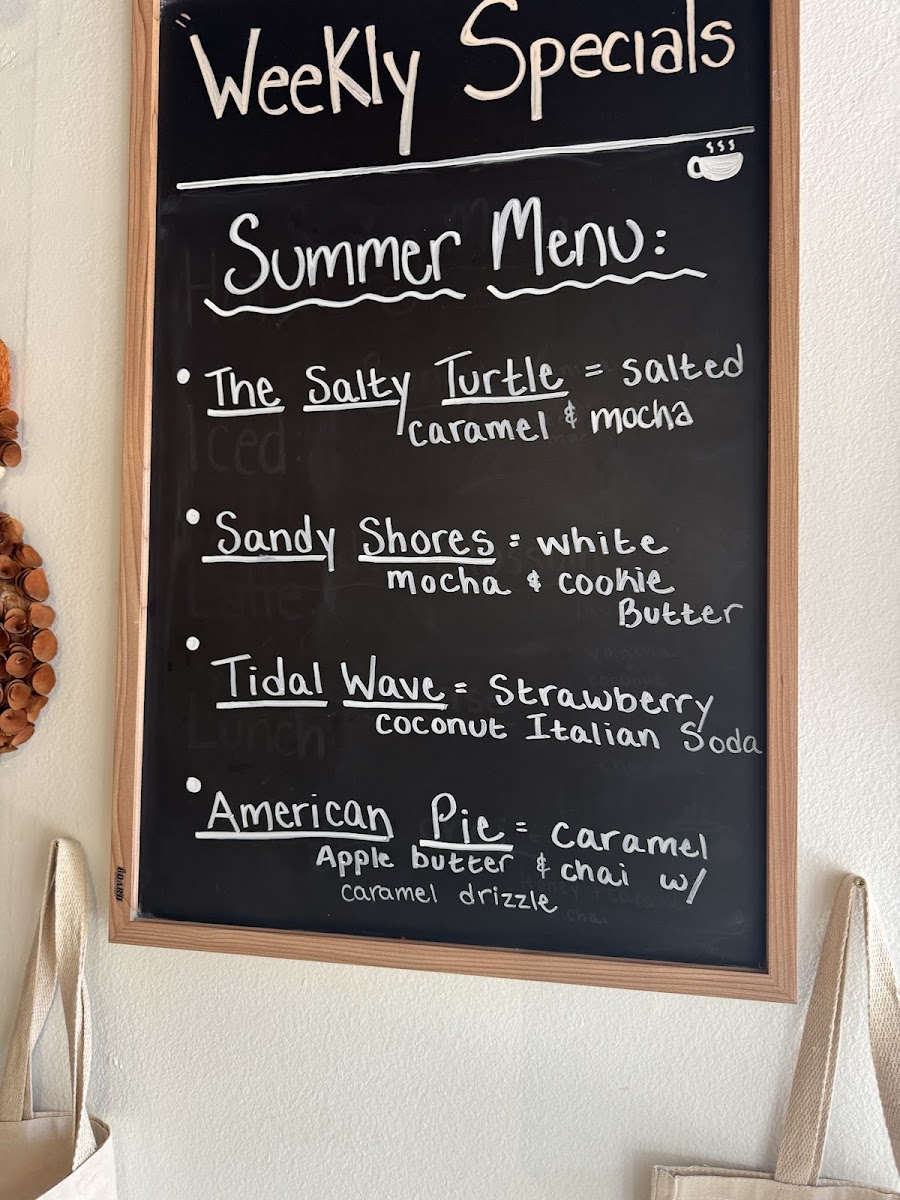 Weekly Specials
Summer Menu:
• The Salty Turtle = salted
caramel & mocha
• Sandy Shores = white
mocha & cookie
Butter
• Tidal Wave = Strawberry
coconut Italian Soda
• American Pie = caramel
Apple butter & chai w/
caramel drizzle